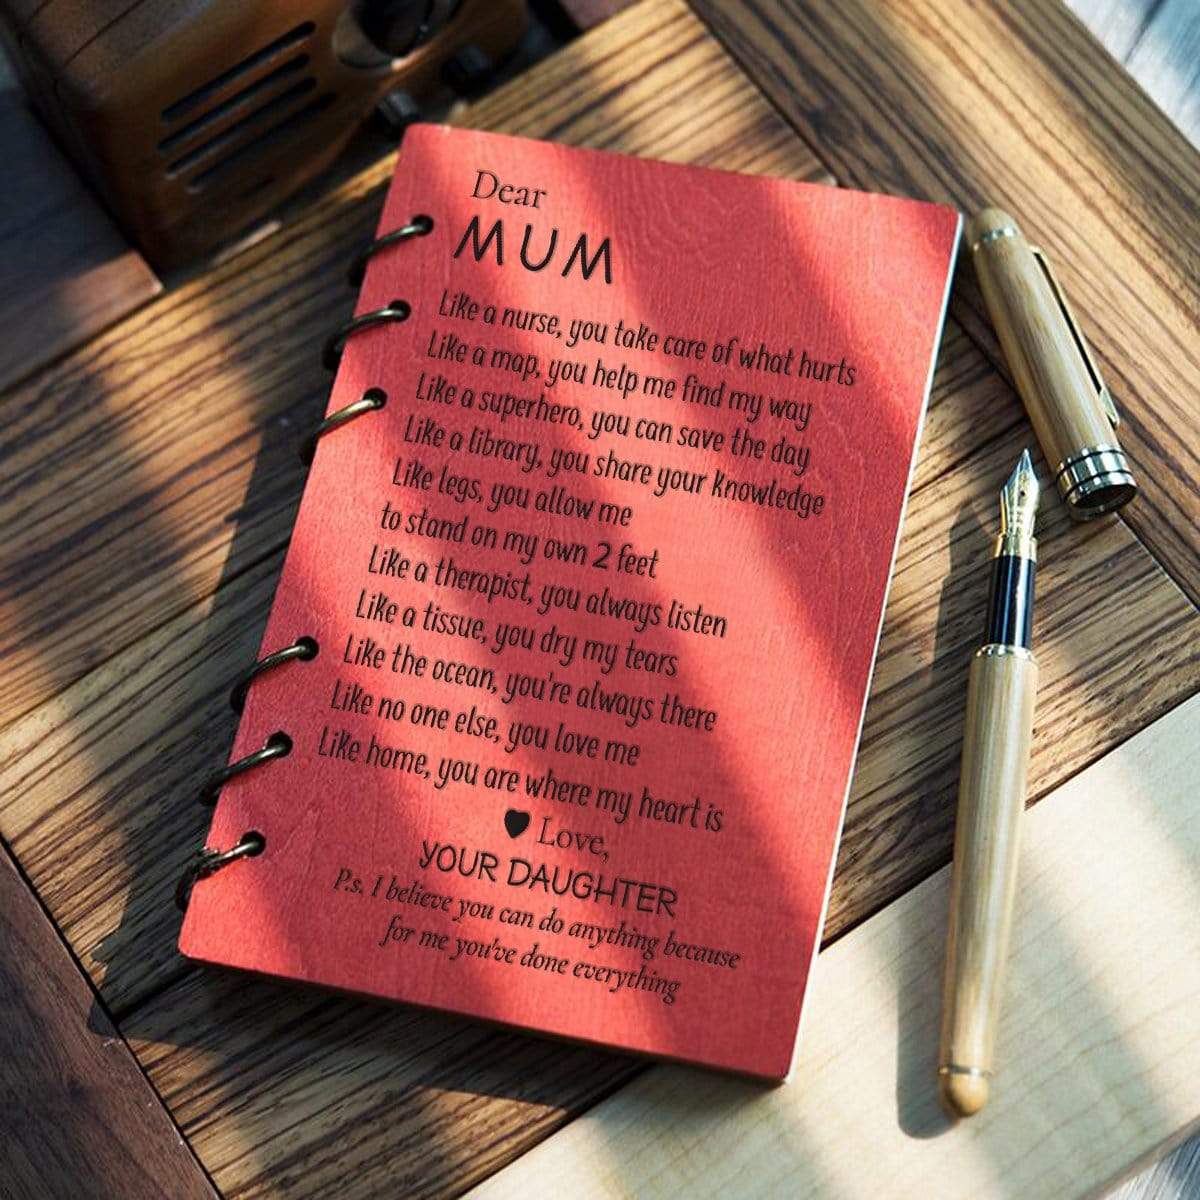 Dear
MUM
Like a nurse, you take care of what hurts
Like a map, you help me find my way
Like a superhero, you can save the day
Like a library, you share your knowledge
Like legs, you allow me
to stand on my own 2 feet
Like a therapist, you always listen
Like a tissue, you dry my tears
Like the ocean, you're always there
Like no one else, you love me
Like home, you are where my heart is
♥ Love,
YOUR DAUGHTER
P.s. I believe you can do anything because
for me you've done everything